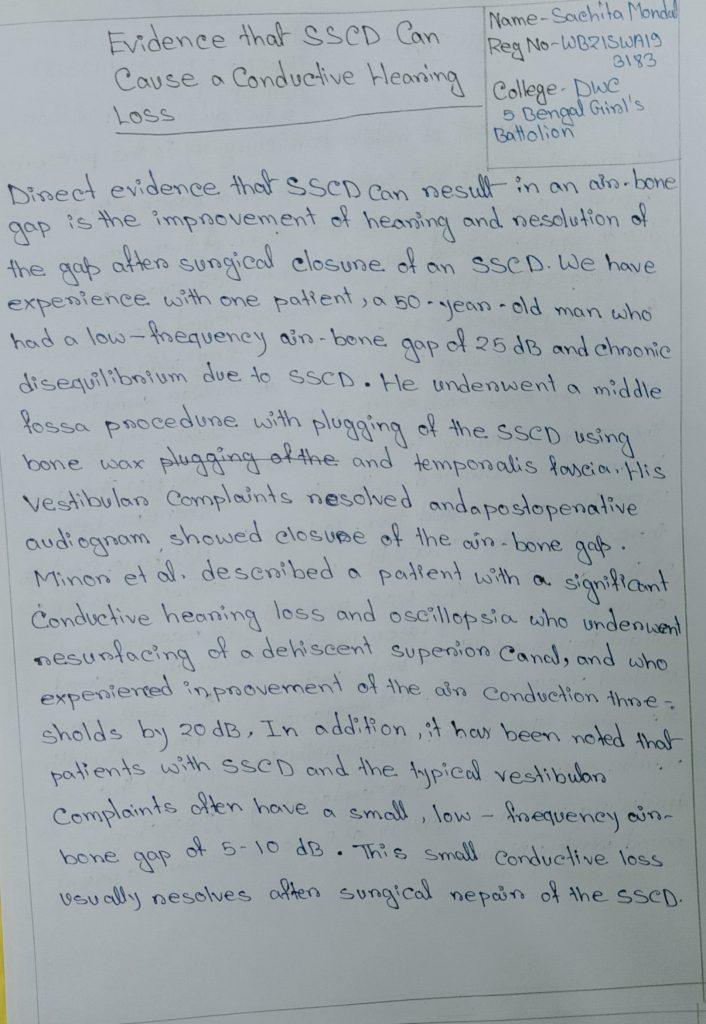 Evidence that SSCD Can
Cause a Conductive Hearing
Loss
Name-Sachita Mondal
Reg No-WB21SWA19
3183
College- DWC
5 Bengal Girl's
Battolion
Direct evidence that SSCD can result in an air-bone
gap is the improvement of hearing and resolution of
the gap after surgical closure of an SSCD. We have
experience with one patient, a 50-year-old man who
had a low-frequency air-bone gap of 25 dB and chronic
disequilibrium due to SSCD. He underwent a middle
fossa procedure with plugging of the SSCD using
bone wax plugging of the and temporalis fascia. His
vestibular Complaints resolved andapostoperative
audiogram, showed closure of the air-bone gap.
Minor et al. described a patient with a significant
Conductive hearing loss and oscillopsia who underwent
resurfacing of a dehiscent superior Canal, and who
experienced inprovement of the air Conduction thre-
sholds by 20 dB. In addition, it has been noted that
patients with SSCD and the typical vestibular
Complaints often have a small, low-frequency air-
bone gap of 5-10 dB. This small conductive loss
usually resolves after surgical repair of the SSCD.